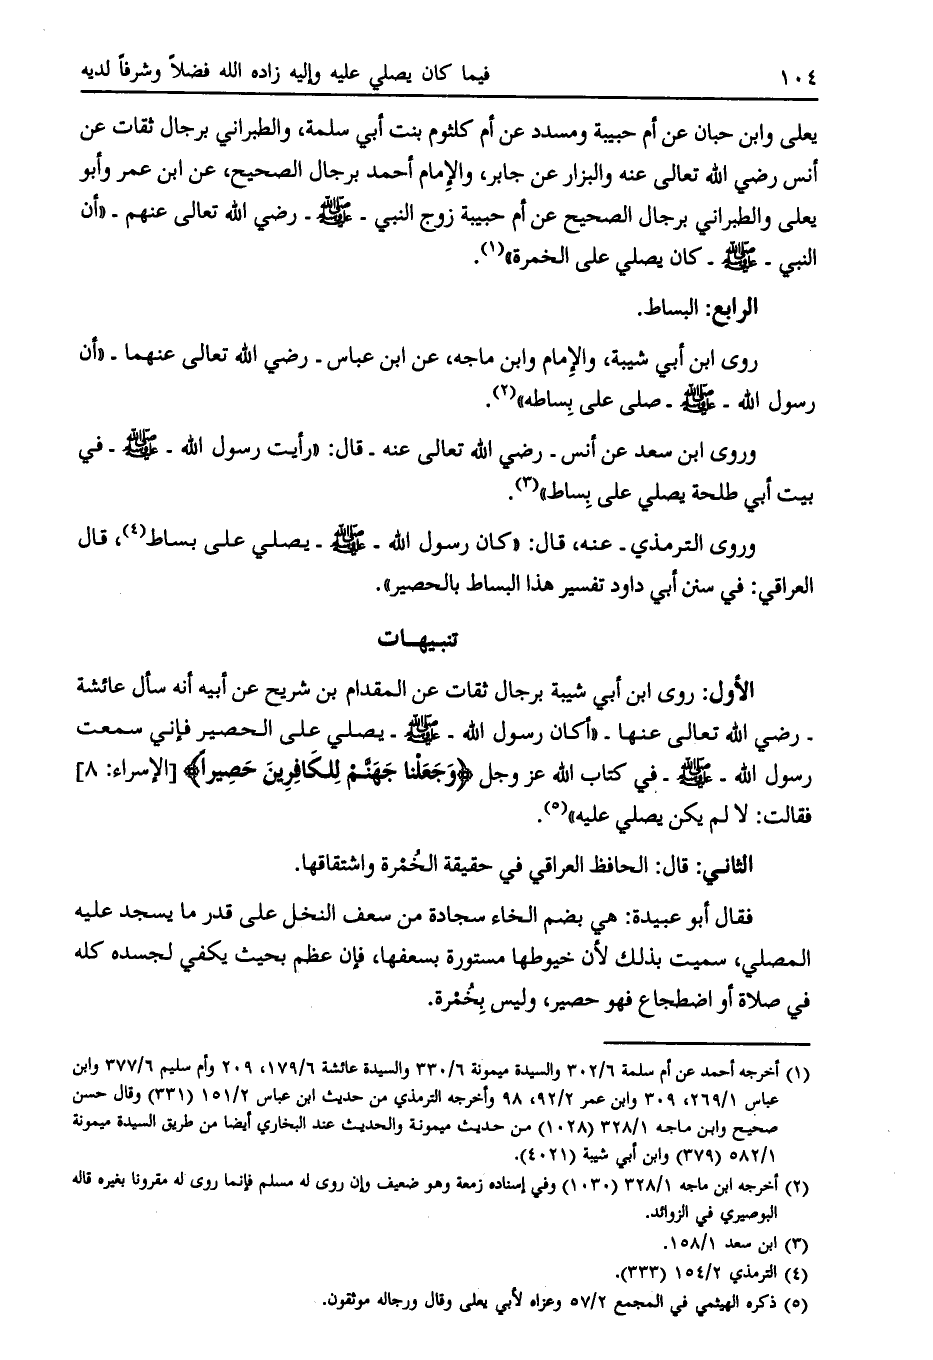 ١٠٤ فيما كان يصلي عليه وإليه زاده الله فضلاً وشرفاً لديه
يعلى وابن حبان عن أم حبيبة ومسدد عن أم كلثوم بنت أبي سلمة، والطبراني برجال ثقات عن
أنس رضي الله تعالى عنه والبزار عن جابر، والإمام أحمد برجال الصحيح، عن ابن عمر وأبو
يعلى والطبراني برجال الصحيح عن أم حبيبة زوج النبي ـ ﷺ ـ رضي الله تعالى عنهم ـ «أن
النبي ـ ﷺ ـ كان يصلي على الخمرة»(١).
الرابع: البساط.
روى ابن أبي شيبة، والإمام وابن ماجه، عن ابن عباس ـ رضي الله تعالى عنهما ـ «أن
رسول الله ـ ﷺ ـ صلى على بِساطه»(٢).
وروى ابن سعد عن أنس ـ رضي الله تعالى عنه ـ قال: «رأيت رسول الله ـ ﷺ ـ في
بيت أبي طلحة يصلي على بِساط»(٣).
وروى الترمذي ـ عنه، قال: «كان رسول الله ـ ﷺ ـ يصلي على بساط(٤)، قال
العراقي: في سنن أبي داود تفسير هذا البساط بالحصير».
تنبيهات
الأول: روى ابن أبي شيبة برجال ثقات عن المقدام بن شريح عن أبيه أنه سأل عائشة
ـ رضي الله تعالى عنها ـ «أكان رسول الله ـ ﷺ ـ يصلي على الحصير فإني سمعت
رسول الله ـ ﷺ ـ في كتاب الله عز وجل ﴿وَجَعَلْنا جَهَنَّمْ لِلكَافِرِينَ حَصِيراً﴾ [الإسراء: ٨]
فقالت: لا لم يكن يصلي عليه»(٥).
الثاني: قال: الحافظ العراقي في حقيقة الخُمْرة واشتقاقها.
فقال أبو عبيدة: هي بضم الخاء سجادة من سعف النخل على قدر ما يسجد عليه
المصلي، سميت بذلك لأن خيوطها مستورة بسعفها، فإن عظم بحيث يكفي لجسده كله
في صلاة أو اضطجاع فهو حصير، وليس بِخُمْرة.
(١) أخرجه أحمد عن أم سلمة ٣٠٢/٦ والسيدة ميمونة ٣٣٠/٦ والسيدة عائشة ١٧٩/٦، ٢٠٩ وأم سليم ٣٧٧/٦ وابن
عباس ٢٦٩/١، ٣٠٩ وابن عمر ٩٢/٢، ٩٨ وأخرجه الترمذي من حديث ابن عباس ١٥١/٢ (٣٣١) وقال حسن
صحيح وابن ماجه ٣٢٨/١ (١٠٢٨) من حديث ميمونة والحديث عند البخاري أيضا من طريق السيدة ميمونة
٥٨٢/١ (٣٧٩) وابن أبي شيبة (٤٠٢١).
(٢) أخرجه ابن ماجه ٣٢٨/١ (١٠٣٠) وفي إسناده زمعة وهو ضعيف وإن روى له مسلم فإنما روى له مقرونا بغيره قاله
البوصيري في الزوائد.
(٣) ابن سعد ١٥٨/١.
(٤) الترمذي ١٥٤/٢ (٣٣٣).
(٥) ذكره الهيثمي في المجمع ٥٧/٢ وعزاه لأبي يعلى وقال ورجاله موثقون.